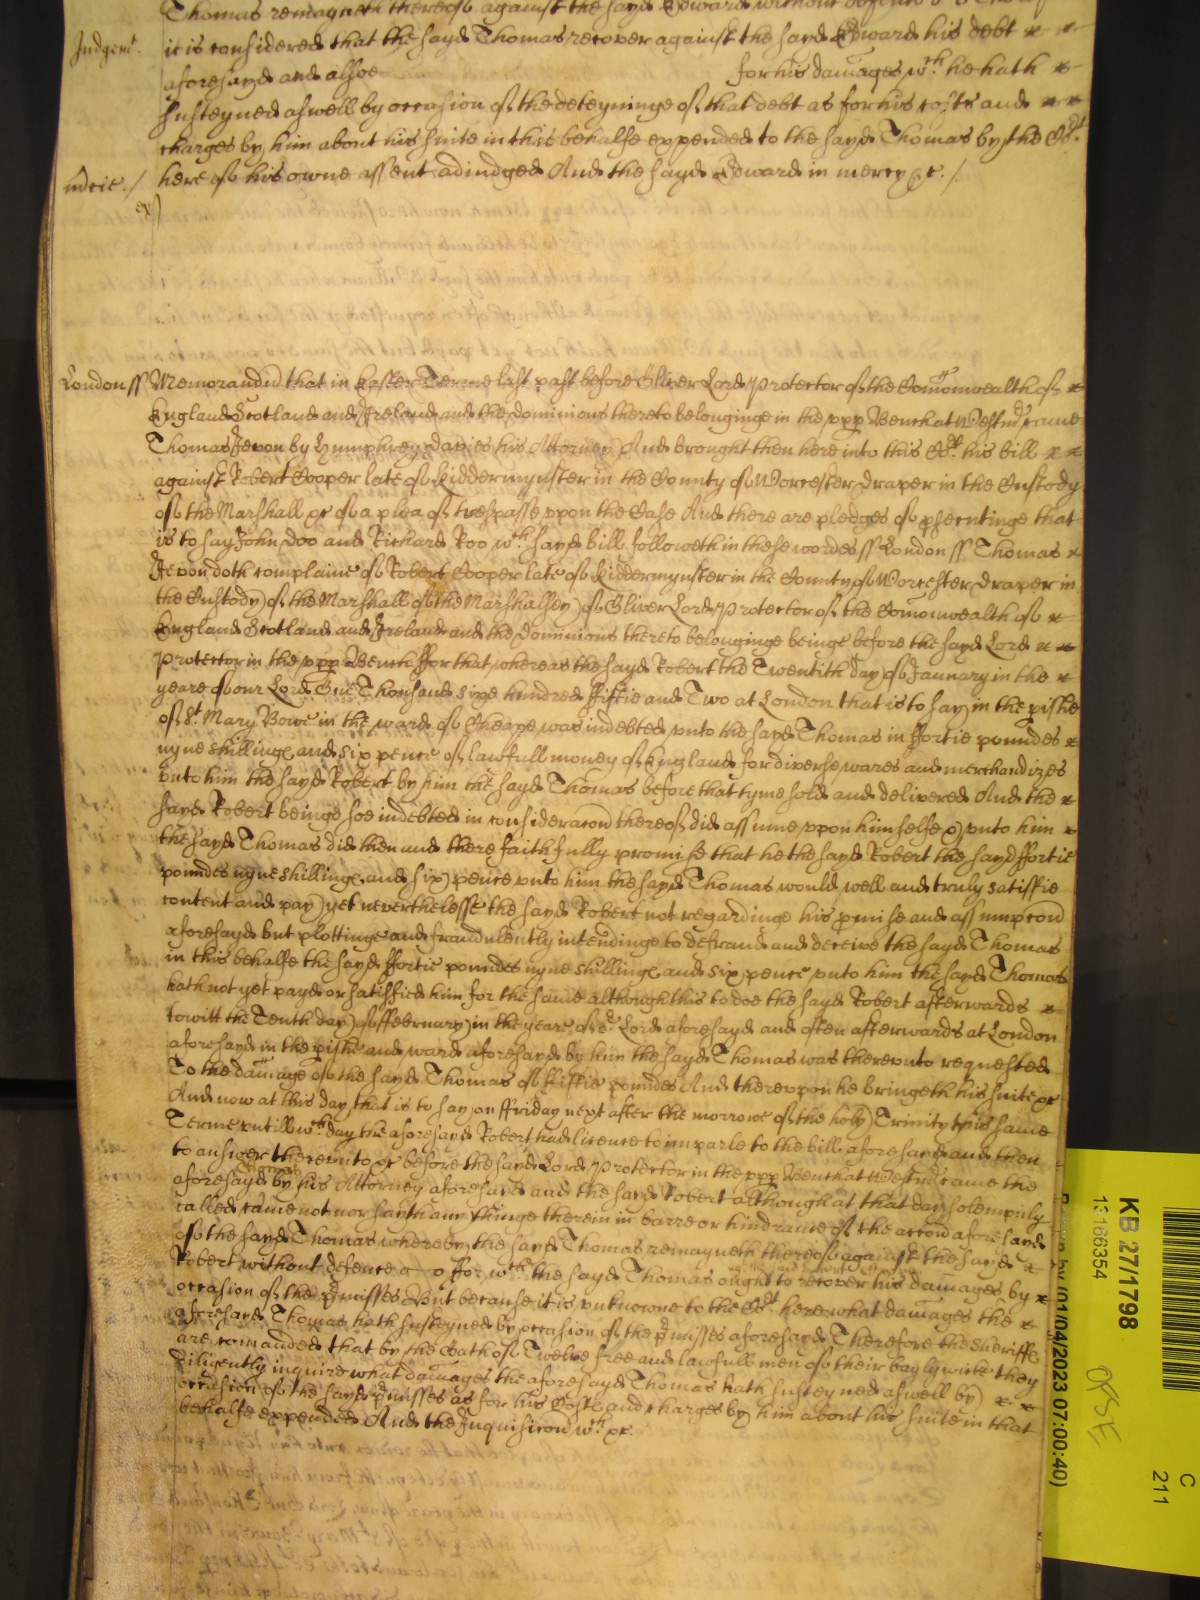 Thomas remayneth thereof against the sayd Edward without defence
Judgemt. it is considered that the sayd Thomas recover against the sayd Edward his debt
aforesayd and alsoe for his damages wch he hath
susteyned aswell by occasion of the deteyninge of that debt as for his costs and
charges by him about his suite in this behalfe expended to the sayd Thomas by the Cort
mcie./ here of his owne assent adiudged And the sayd Edward in mercy &c./
London ss Memorandd that in Easter Terme last past before Oliver Lord Protector of the Comonwealth of
England Scotland and Ireland and the dominions thereto belonginge in the upp Bench at Westmr came
Thomas Jevon by Humphrey Davies his Attorney And brought then here into this Cort his bill
against Robert Cooper late of Kiddermynster in the County of Worcester draper in the Custody
of the Marshall &c of a plea of trespasse uppon the Case And there are pledges of psecutinge that
is to say John Doo and Richard Roo wch sayd bill followeth in these wordes ss London ss Thomas
Jevon doth complaine of Robert Cooper late of Kiddermynster in the County of Worcester draper in
the Custody of the Marshall of the Marshalsey of Oliver Lord Protector of the Comonwealth of
England Scotland and Ireland and the Dominions thereto belonginge beinge before the sayd Lord
Protector in the upp Bench ffor that whereas the sayd Robert the Twentith day of January in the
yeare of our Lord One Thousand Sixe hundred ffiftie and Two at London that is to say in the pishe
of St. Mary Bowe in the ward of Cheape was indebted unto the sayd Thomas in ffortie poundes
nyne shillinge and six pence of lawfull money of England for diverse wares and merchandizes
unto him the sayd Robert by him the sayd Thomas before that tyme sold and delivered And the
sayd Robert beinge soe indebted in consideracon thereof did assume uppon himselfe & unto him
the sayd Thomas did then and there faithfully promise that he the sayd Robert the sayd ffortie
poundes nyne shillinge and six pence unto him the sayd Thomas would well and truly satisfie
content and pay yet neverthelesse the sayd Robert not regardinge his pmise and assumpcon
aforesayd but plottinge and fraudulently intendinge to defraud and deceive the sayd Thomas
in this behalfe the sayd ffortie poundes nyne shillinge and six pence unto him the sayd Thomas
hath not yet payd or satisfied him for the same although this to doe the sayd Robert afterwards
towitt the Tenth day of ffebruary in the yeare of or Lord aforesayd and often afterwards at London
aforesayd in the pishe and ward aforesayd by him the sayd Thomas was thereunto requested
To the damage of the sayd Thomas of ffiftie poundes And thereuppon he bringeth his suite &c
And now at this day that is to say on ffriday next after the morrowe of the holy Trinity this same
Terme untill wch day the aforesayd Robert had licence to imparle to the bill aforesayd and then
to answer thereunto &c before the sayd Lord Protector in the upp Bench at Westmr came the
aforesayd Thomas by his Attorney aforesayd and the sayd Robert although at that day solempnly
called came not nor sayth any thinge therein in barre or hindrance of the accon aforesayd
of the sayd Thomas whereby the sayd Thomas remayneth thereof against the sayd
Robert without defence ffor wch the sayd Thomas ought to recover his damages by
occasion of the pmisses But because it is unknowne to the Cort here what damages the
aforesayd Thomas hath susteyned by occasion of the pmisses aforesayd Therefore the Sheriffe
are comanded that by the Oath of Twelve free and lawfull men of their baylywicke they
diligently inquire what damages the aforesayd Thomas hath susteyned aswell by
occasion of the sayd pmisses as for his Costs and charges by him about his suite in that
behalfe expended And the Inquisicon wch &c
KB 27/1798
13166354
C
211
01/04/2023 07:00:40)